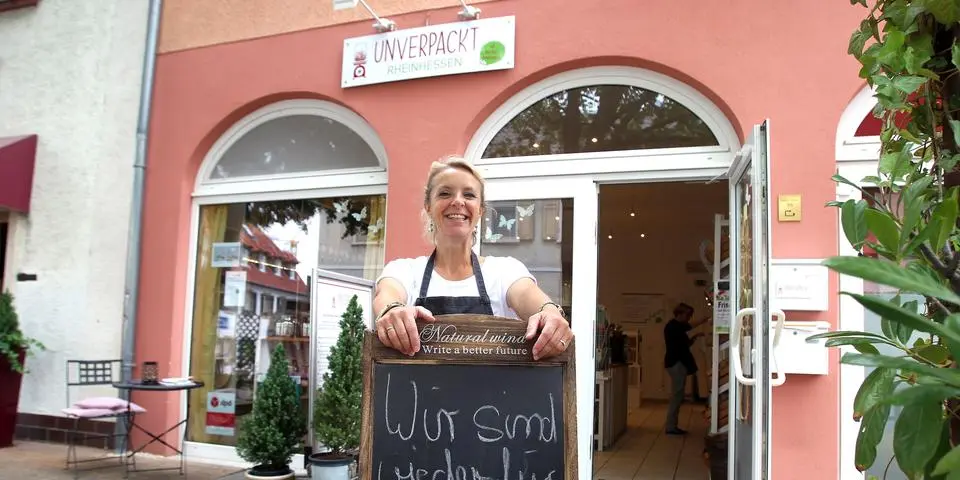 UNVERPACKT
RHEINHESSEN
Natural wind
Write a better future
Wir sind
wieder für
dpd
Fris